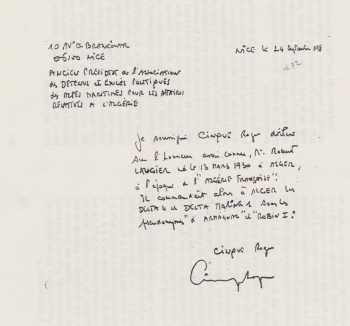 10 AVE BRANCOLAR
06100 NICE
NICE le 24
ANCIEN PRÉSIDENT de l'ASSOCIATION
des DÉTENUS et EXILÉS POLITIQUES
des ALPES MARITIMES POUR LES AFFAIRES
RELATIVES A L'ALGÉRIE
Je soussigné CINQUÉ Roger déclare
sur l'honneur avoir connu, Mr. Robert
LAUGIER né le 13 MARS 1930 à ALGER,
à l'époque de l'"ALGÉRIE FRANÇAISE".
IL commandait alors à ALGER les
DELTA 4 et DELTA sous les
pseudonymes d' et "ROBIN I".
CINQUÉ Roger